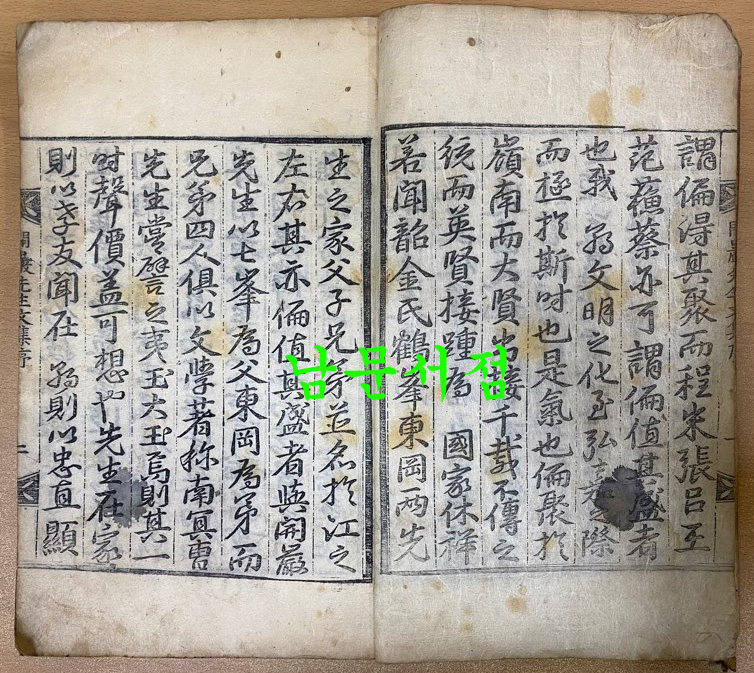 謂偏得其聚而程朱張呂至
范蘇蔡亦可謂偏值其盛者
也我 朝文明之化至弘嘉之際
而極於斯時也是氣也偏聚於
嶺南而大賢接千載不傳之
統而英賢接踵爲 國家休祥
若聞韶金氏鶴峯東岡兩先
生之家父子兄弟並名於江之
左右其亦偏值其盛者與開巖
先生以七峯爲父東岡爲弟而
兄弟四人俱以文學著称南冥曹
先生嘗譬之夷玉大玉焉則其一
時聲價盖可想也先生在家
則以孝友聞在 朝則以忠直顯
開巖先生文集序
二
남문서점